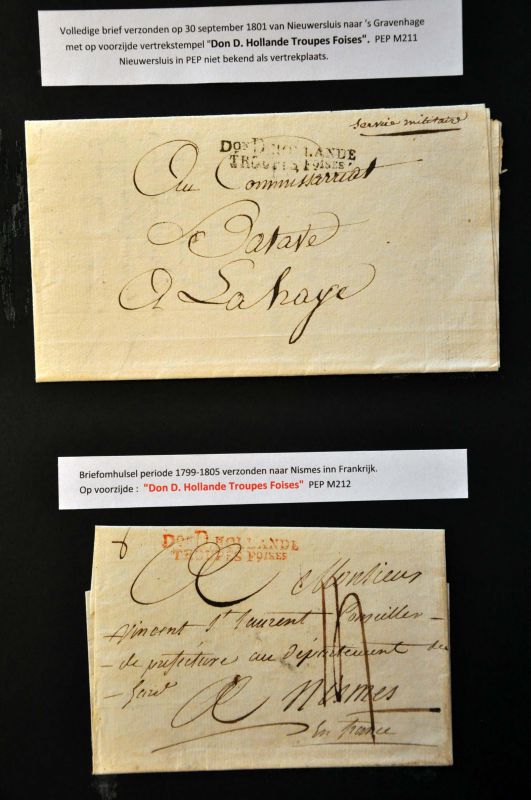 Volledige brief verzonden op 30 september 1801 van Nieuwersluis naar 's Gravenhage
met op voorzijde vertrekstempel "Don D. Hollande Troupes Foises". PEP M211
Nieuwersluis in PEP niet bekend als vertrekplaats.
Service militaire
Don D. HOLLANDE
TROUPES FOISES
Au Commissariat
Batave
A Lahaye
Briefomhulsel periode 1799-1805 verzonden naar Nismes inn Frankrijk.
Op voorzijde : "Don D. Hollande Troupes Foises" PEP M212
Don D. HOLLANDE
TROUPES FOISES
A Monsieur
Vincent St Laurent Conseiller
de préfecture au Département du
Gard
A Nismes
En france